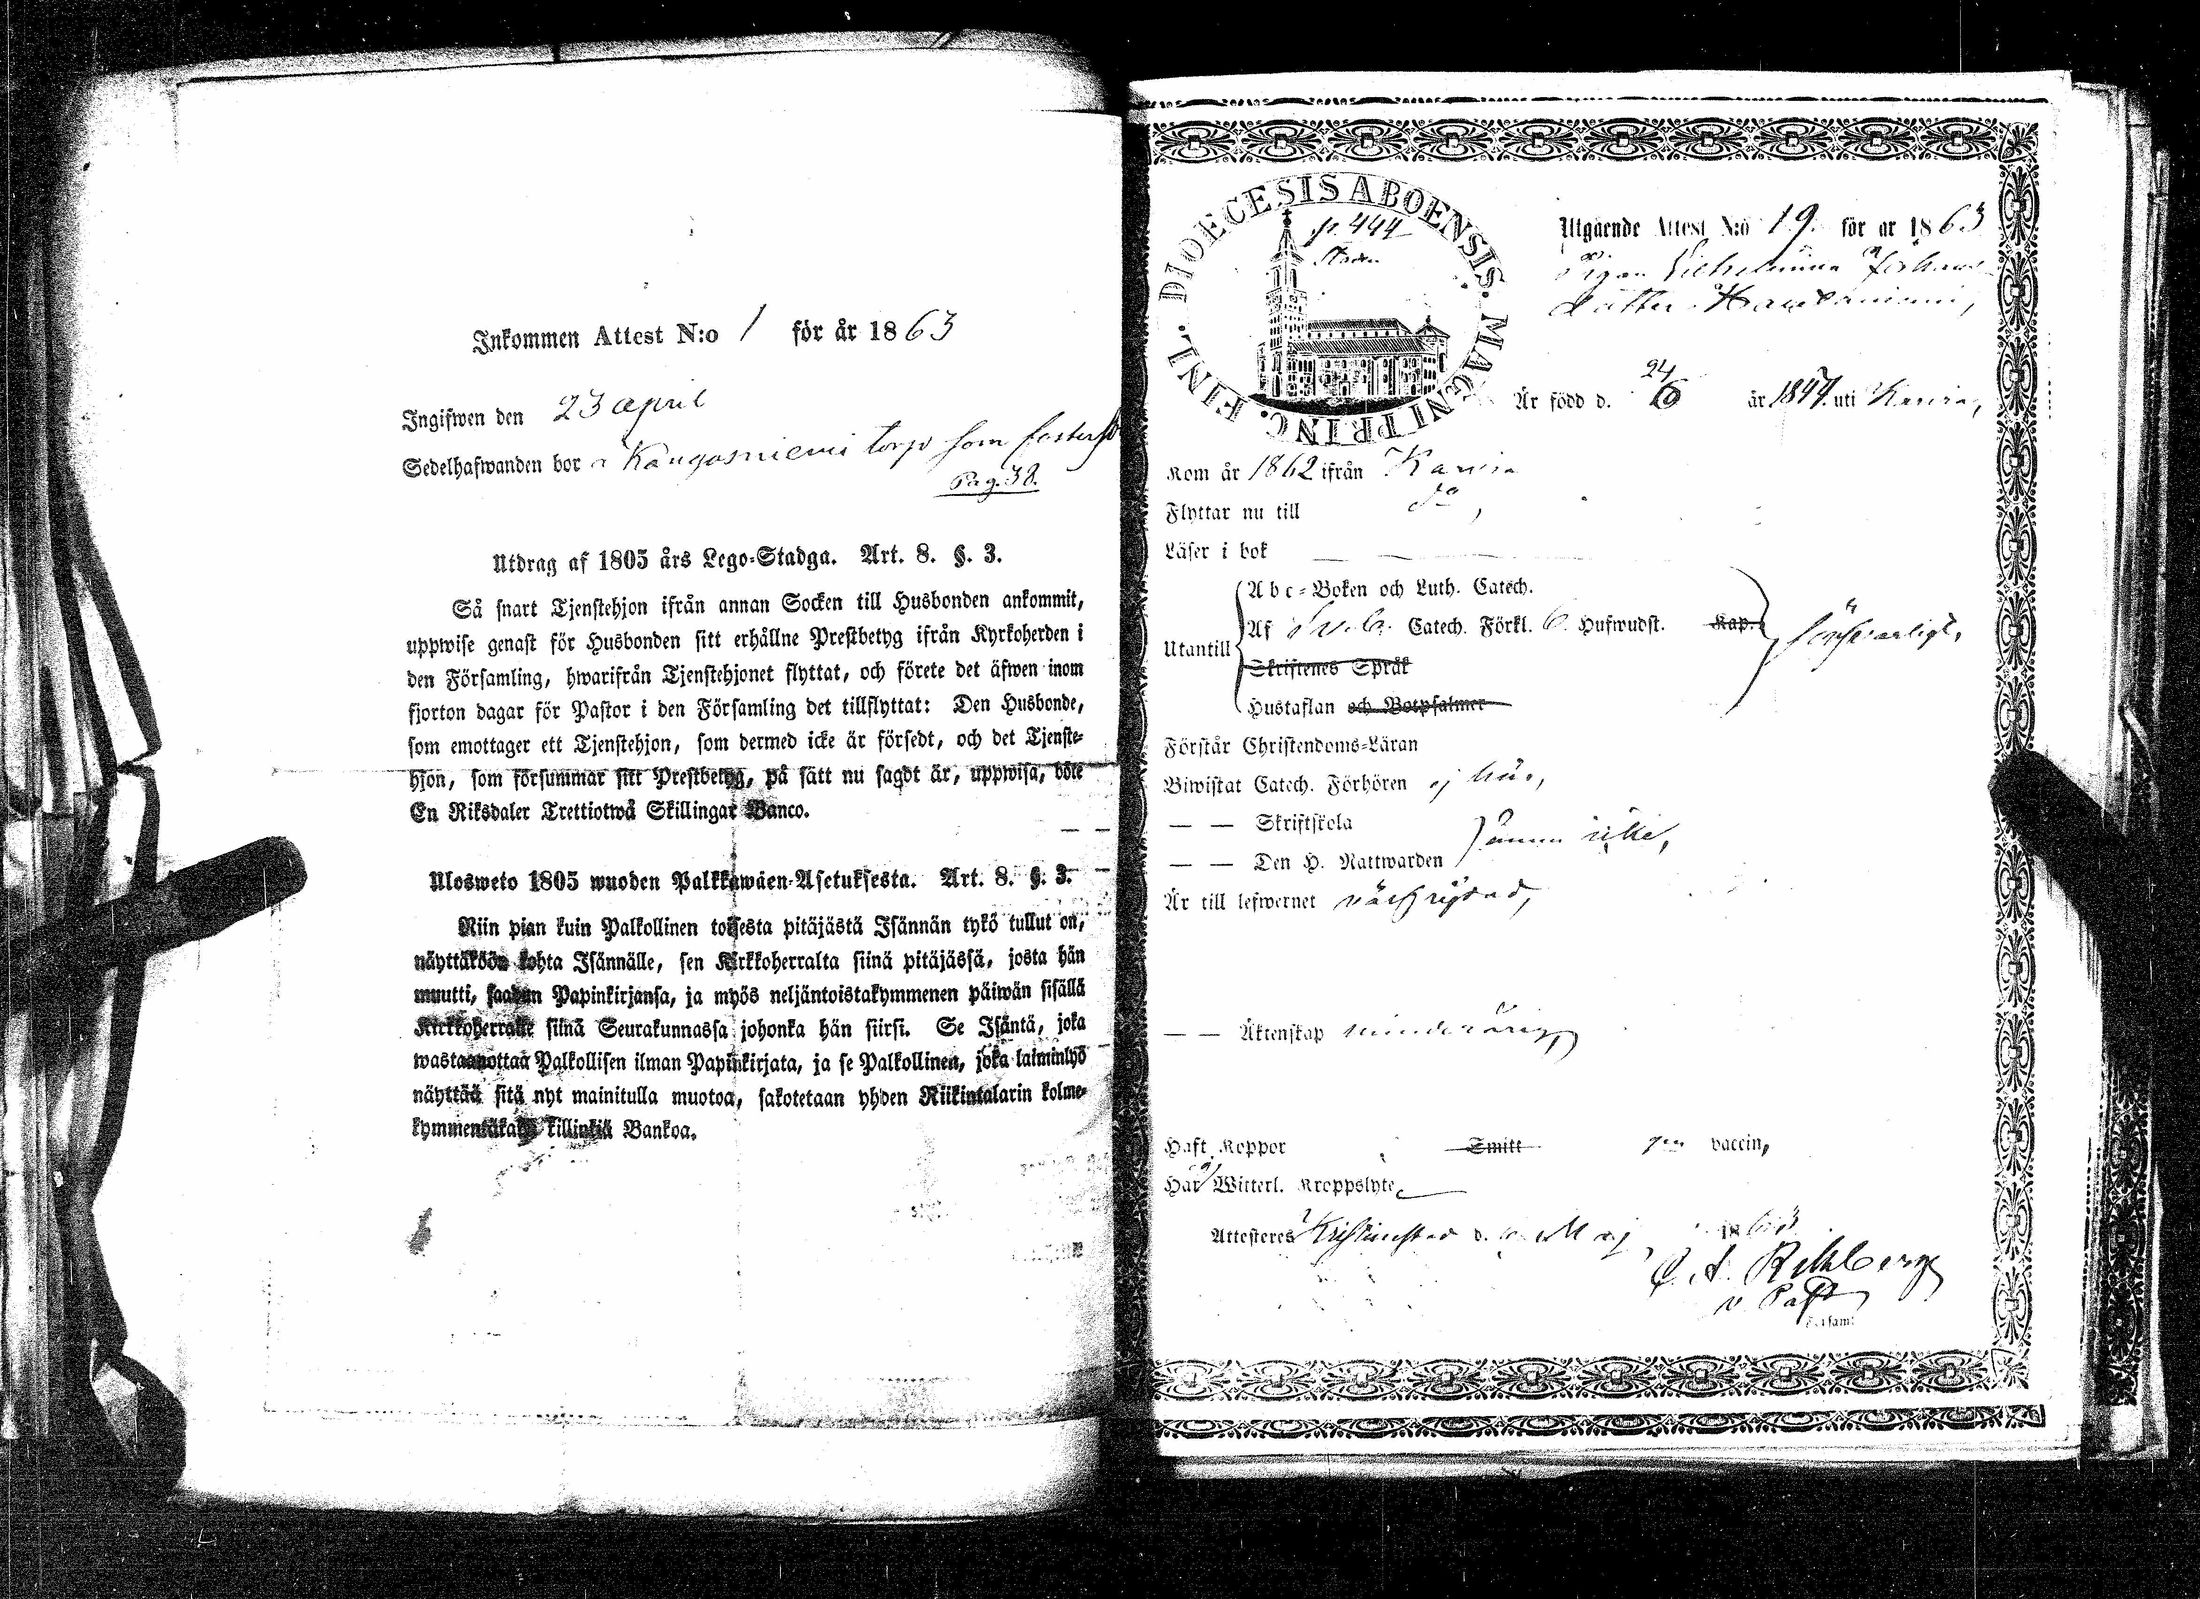 Inkommen Attest N:o 1 för år 1863
Ingifwen den 23 april
Sedelhafwanden bor å Kangasniemi torp som
Pag. 38.
Utdrag af 1805 års Lego-Stadga. Art. 8. §. 3.
Så snart Tjenstehjon ifrån annan Socken till Husbonden ankommit,
uppwise genast för Husbonden sitt erhållne Prestbetyg ifrån Kyrkoherden i
den Församling, hwarifrån Tjenstehjonet flyttat, och förete det äfwen inom
fjorton dagar för Pastor i den Församling det tillflyttat: Den Husbonde,
som emottager ett Tjenstehjon, som dermed icke är försedt, och det Tjenste-
hjon, som försummar sitt Prestbetyg, på sätt nu sagdt är, uppwisa, böte
En Riksdaler Trettiotwå Skillingar Banco.
Ulosweto 1805 wuoden Palkkawäen-Asetuksesta. Art. 8. §. 3.
Niin pian kuin Palkollinen toisesta pitäjästä Isännän tykö tullut on,
näyttäköön kohta Isännälle, sen Kirkkoherralta siinä pitäjässä, josta hän
muutti, saadun Papinkirjansa, ja myös neljäntoistakymmenen päiwän sisällä
Kirkkoherralle siinä Seurakunnassa johonka hän siirsi. Se Isäntä, joka
wastaanottaa Palkollisen ilman Papinkirjata, ja se Palkollinen, joka laiminlyö
näyttää sitä nyt mainitulla muotoa, sakotetaan yhden Riikintalarin kolme-
kymmentäkaksi killinkiä Bankoa.
DIOECESIS ABOENSIS. MAGNI PRINC. FINL.
p. 444
Staden
Utgående Attest N:o 19. för år 1863
Pigan Vilhelmina Johans
dotter
Är född d. 24/6 år 1847. uti Karvia,
Kom år 1862 ifrån Karvia
Flyttar nu till do,
Läser i bok
Utantill
Abc-Boken och Luth. Catech.
Af Sveb. Catech. Förkl. 6. Hufwudst. Kap.
Skriftenes Språk
Hustaflan och Botpsalmer
försvarligt,
Förstår Christendoms-Läran
Biwistat Catech. Förhören ej här,
— — Skriftskola
— — Den H. Nattwarden
ännu icke,
Är till lefwernet välfrejdad,
— — Äktenskap minderårig,
Haft Koppor Smitt gm vaccin,
Har ej Witterl. Kroppslyte,
Attesteres Kristinestad d. Maj 1863
C. A. Rehlberg
v. Past
Församl